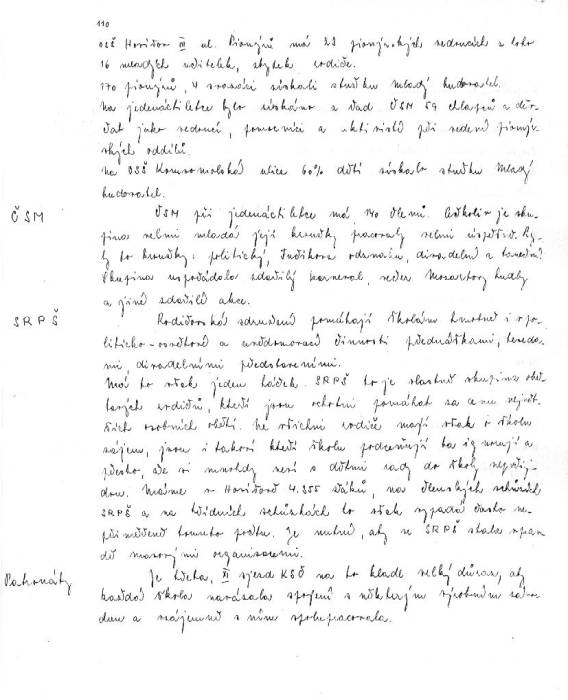 110
OSŠ Hořičov III ul. Pionýrů má 23 pionýrských vedoucích z toho
16 mladých učitelek, zbytek rodiče.
170 pionýrů, 4 svazáci získali stužku mladý budovatel.
Na jedenáctiletce bylo získáno z řad ČSM 59 chlapců a děv-
čat jako vedoucí, pomocníci a aktivisté při vedení pionýr-
ských oddílů.
Na OSŠ Komsomolská ulice 60% dětí získalo stužku Mladý
budovatel.
ČSM
ČSM při jedenáctiletce má 140 členů. Ačkoliv je sku-
pina velmi mladá její kroužky pracovaly velmi úspěšně. By-
ly to kroužky: politický, Fučíkova odznaku, divadelní a taneční.
Skupina uspořádala zdařilý karneval, večer Mozartovy hudby
a jiné zdařilé akce.
SRPŠ
Rodičovská sdružení pomáhají školám hmotně i v po-
liticko-osvětové a uvědomovací činnosti přednáškami, beseda-
mi, divadelními představeními.
Má to však jeden háček. SRPŠ to je vlastně skupina obě-
tavých rodičů, kteří jsou ochotni pomáhat za cenu největ-
ších osobních obětí. Ne všichni rodiče mají však o školu
zájem, jsou i takoví kteří školu podceňují ba ignorují a
přesto, že si mnohdy neví s dětmi rady do školy nepřijí-
dou. Máme v 4.355 žáků, na členských schůzích
SRPŠ a na třídních schůzkách to však vypadá často ne-
přiměřeně tomuto počtu. Je nutné, aby se SRPŠ stala oprav-
dě masovými organisacemi.
Patronáty
Je třeba, XI sjezd KSČ na to klade velký důraz, aby
každá škola navázala spojení s některým výrobním závo-
dem a vzájemně s ním spolupracovala.